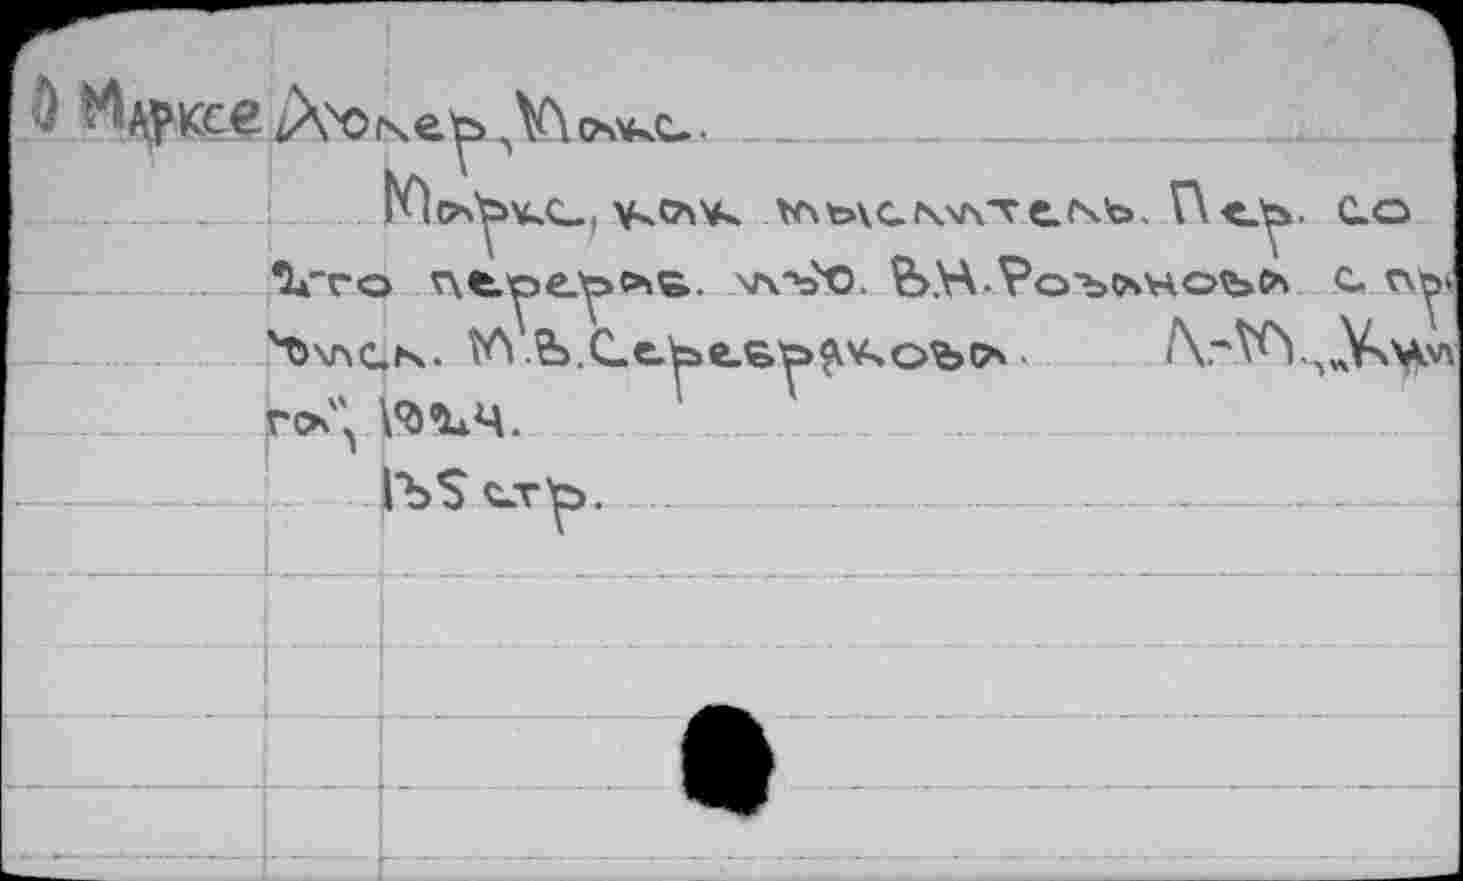 О Марксе Адлер, Макс.
Маркс, как мыслитель. Пер. со
2-го перераб. изд. В.Н.Розанова с пр
дисл. М.В.Серебрякова. Л.-М., „Кни
га", 1924.
135 стр.